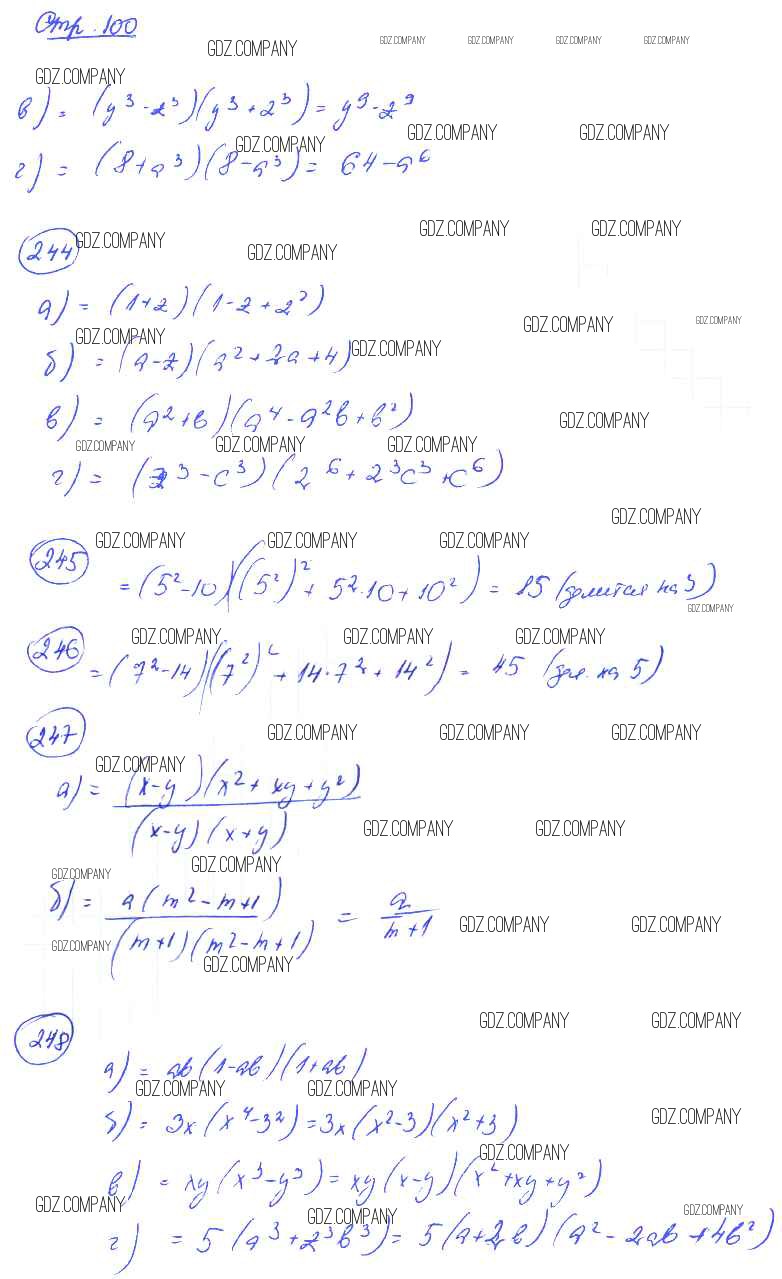 Стр. 100
GDZ.COMPANY GDZ.COMPANY GDZ.COMPANY GDZ.COMPANY GDZ.COMPANY
GDZ.COMPANY
в) = (y³ - z³)(y³ + z³) = y⁹ - z⁹
GDZ.COMPANY GDZ.COMPANY GDZ.COMPANY
г) = (8 + a³)(8 - a³) = 64 - a⁶
GDZ.COMPANY GDZ.COMPANY
244 GDZ.COMPANY GDZ.COMPANY
а) = (1+z)(1 - z + z²)
GDZ.COMPANY GDZ.COMPANY
GDZ.COMPANY GDZ.COMPANY
б) = (a - 2)(a² + 2a + 4)
в) = (a² + b)(a⁴ - a²b + b²)
GDZ.COMPANY
GDZ.COMPANY GDZ.COMPANY GDZ.COMPANY
г) = (2³ - c³)(2⁶ + 2³c³ + c⁶)
GDZ.COMPANY
GDZ.COMPANY GDZ.COMPANY GDZ.COMPANY
245 = (5² - 10)((5²)² + 5²·10 + 10²) = 15 (делится на 3)
GDZ.COMPANY
GDZ.COMPANY GDZ.COMPANY GDZ.COMPANY
246 = (7² - 14)((7²)² + 14·7² + 14²) = 45 (дел. на 5)
247 GDZ.COMPANY GDZ.COMPANY GDZ.COMPANY
GDZ.COMPANY
а) = (x-y)(x² + xy + y²)
(x-y)(x+y)
GDZ.COMPANY GDZ.COMPANY
GDZ.COMPANY GDZ.COMPANY
б) = a(m² - m + 1) = a
(m+1)(m² - m + 1) m+1
GDZ.COMPANY GDZ.COMPANY
GDZ.COMPANY GDZ.COMPANY
GDZ.COMPANY GDZ.COMPANY
248
а) = ab(1 - ab)(1 + ab)
GDZ.COMPANY GDZ.COMPANY
б) = 3x(x⁴ - 3²) = 3x(x² - 3)(x² + 3)
GDZ.COMPANY
GDZ.COMPANY
в) = xy(x³ - y³) = xy(x - y)(x² + xy + y²)
GDZ.COMPANY GDZ.COMPANY GDZ.COMPANY
г) = 5(a³ + 2³b³) = 5(a + 2b)(a² - 2ab + 4b²)